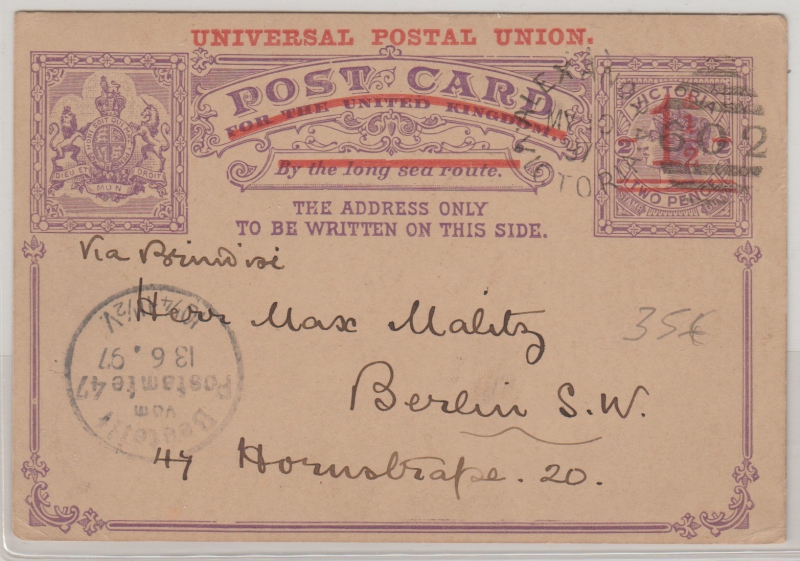 UNIVERSAL POSTAL UNION.
POST CARD
FOR THE UNITED KINGDOM.
By the long sea route.
THE ADDRESS ONLY
TO BE WRITTEN ON THIS SIDE.
DIEU ET MON DROIT
VICTORIA
2 1½ 2
TWO PENCE
MY 5
97
VICTORIA
602
Via Brindisi
Herr Max Malitz
Berlin S.W.
47 Hornstraße. 20.
35€
Bestellt
vom
Postamte 47
13 6. 97